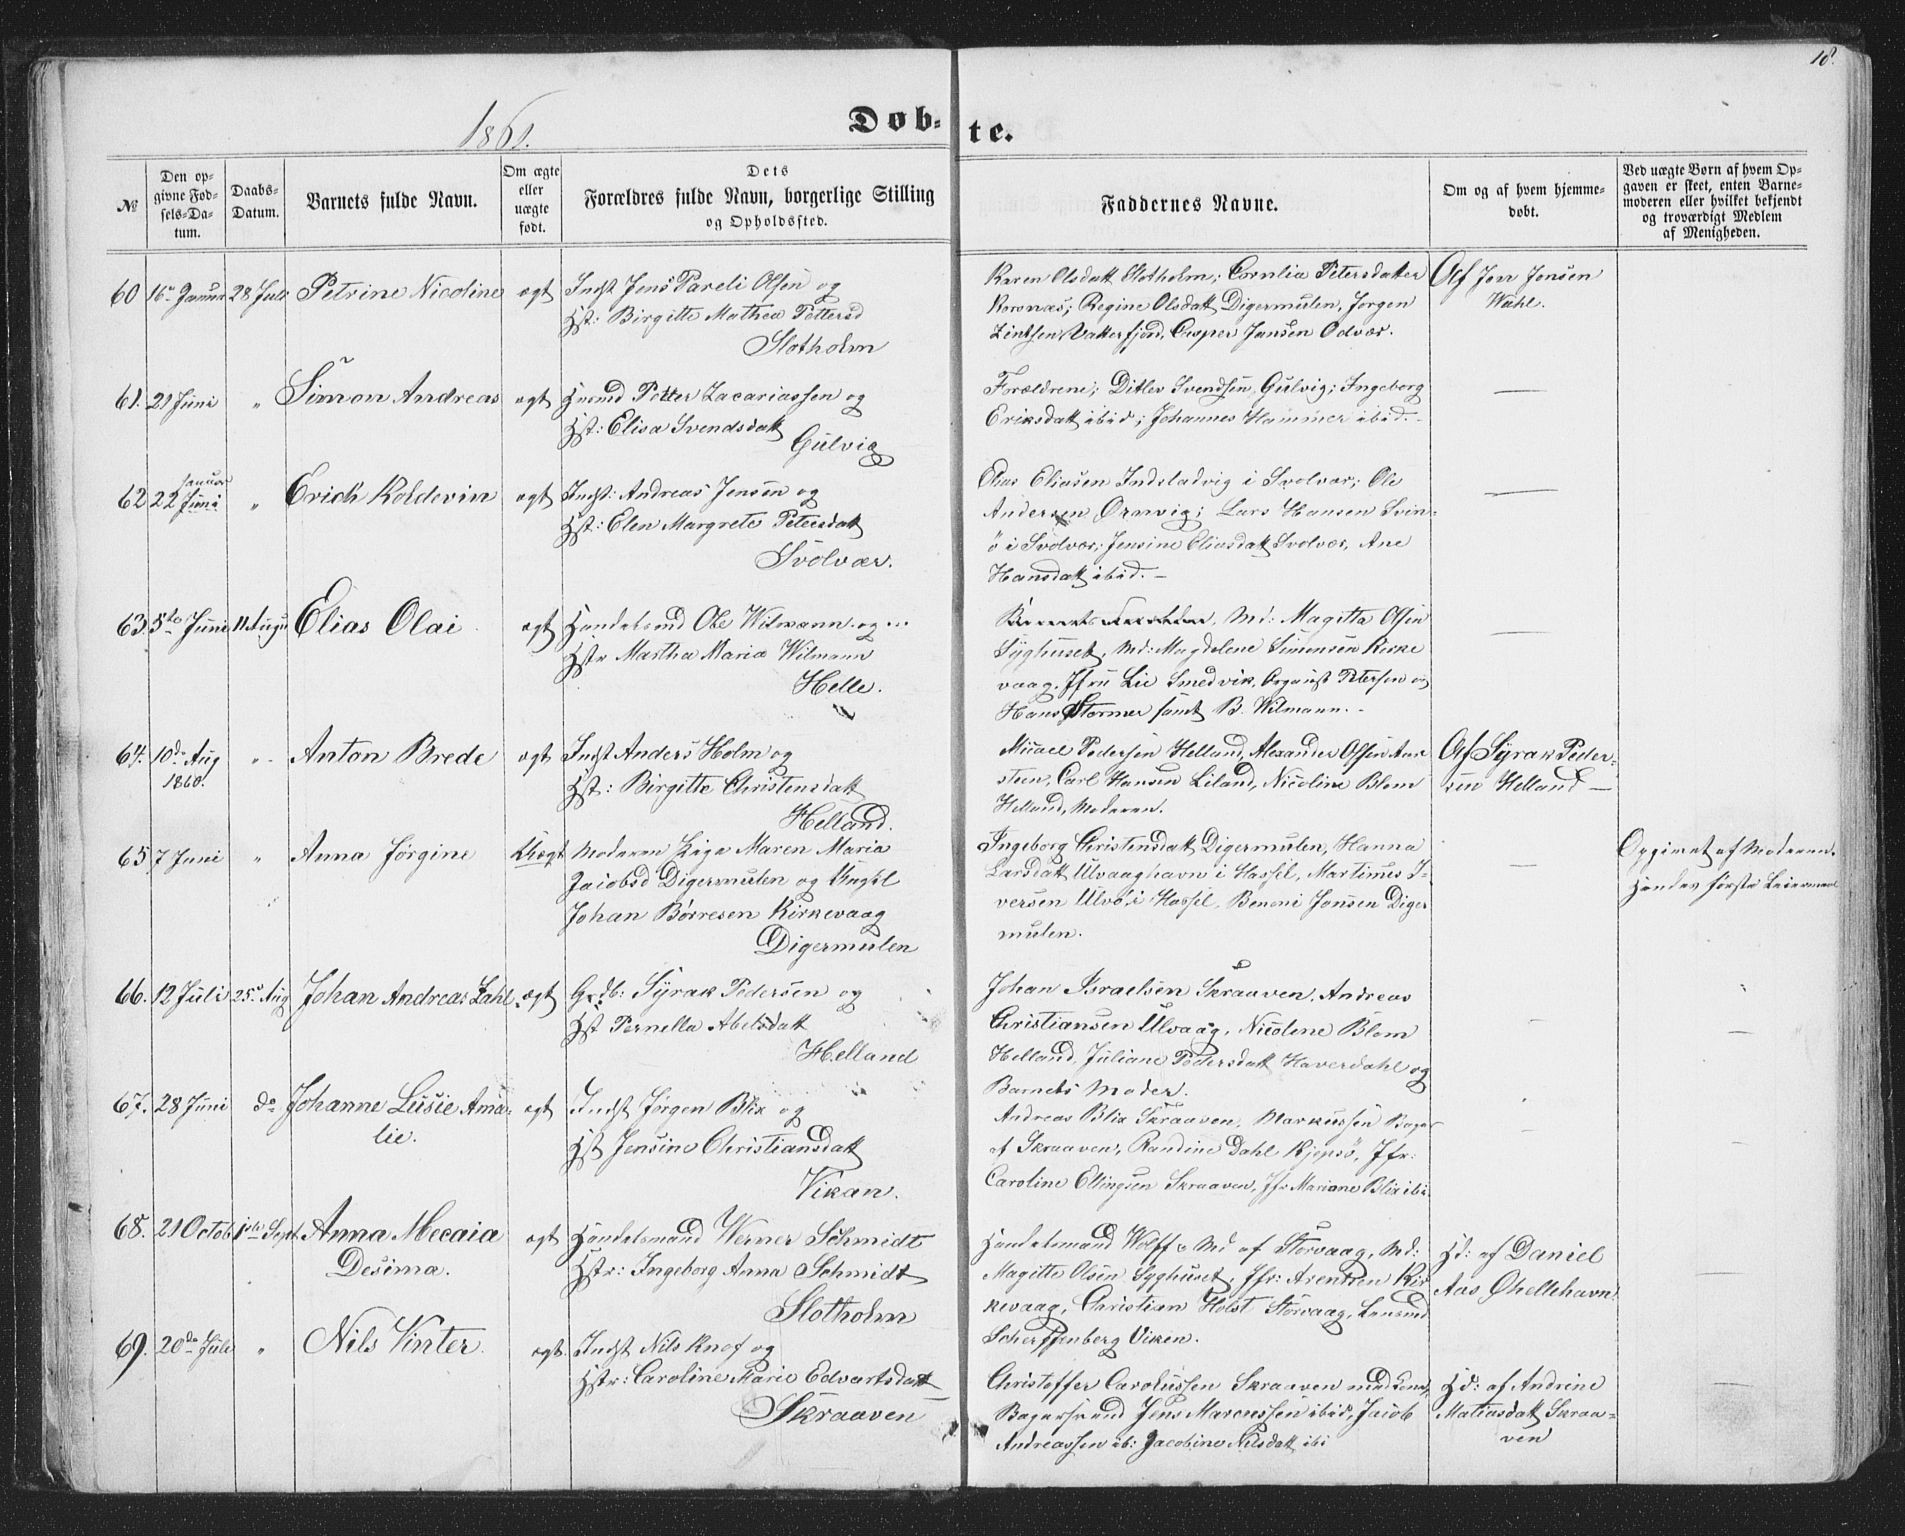 18.
1861.
Døb-te.
№
Den op-
givne Fød-
sels-Da-
tum.
Daabs-
Datum.
Barnets fulde Navn.
Om ægte
eller
uægte
født.
Dets
Forældres fulde Navn, borgerlige Stilling
og Opholdssted.
Faddernes Navne.
Om og af hvem hjemme-
døbt.
Ved uægte Børn af hvem Op-
gaven er skeet, enten Barne-
moderen eller hvilket bekjendt
og troværdigt Medlem
af Menigheden.
60 16 Januar 28 Juli Petrine Nicoline ægt Indst Jens Pareli Olsen og
Hst: Birgitte Mathea Pettersd
Slotholm
Karen Olsdatt Slotholm; Cornlia Petersdatter
Korsnæs; Regine Olsdatt Digermulen, Jørgen
Vatterfjord, Casper Jansen Odvær.
Af Jon Jensen
Wahl.
61. 21 Juni " Simon Andreas ægt Huusmd Petter Zacariassen og
Hst: Elisa Svendsdatt
Gulvig
Forældrene; Ditlev Svendsen, Gulvig; Ingeborg
Eriksdatt ibid; Johannes Hammer ibid. -
—
62 22 Januar Juni " Erich Koldevin ægt Indst: Andreas Jensen og
Hst: Elen Margrete Petersdatt
Svolvær.
Elias Eliasen Indstadvig i Svolvær; Ole
Andersen Ørnvig; Lars Hansen Svin-
ø i Svolvær; Jensine Eliasdatt Svolvær, Ane
Hansdatt ibid. -
—
63. 5te Juni 11 Augu Elias Olai ægt Handelsmd Ole Wilmann og
Hstr Martha Maria Wilmann
Helle.
Md: Magitta Olsen
Syghuset, Md: Magdelene Simonsen Kirke
vaag. Jfru Lie Smedvik, Organist Petersen og
Hans Stormer samt B. Wilmann. -
—
64. 10de Aug
1860. " Anton Brede ægt Indst Anders Holm og
Hst: Birgitte Christensdatt
Helland.
Mikael Pedersen Helland, Alexander Olsen Aar
steen, Carl Hansen Liland, Nicoline Blom
Helland, Moderen.
Af Syrak Peder-
sen Helland —
65 7 Juni " Anna Jørgine Uægt Moderen Pige Maren Maria
Jacobsd Digermulen og Ungkl
Johan Børresen Kirkevaag
Digermulen
Ingeborg Christensdatt Digermulen, Hanna
Larsdatt Ulvaaghavn i Hassel, Martinus I-
versen Ulvø i Hassel, Benoni Jonsen Diger
mulen.
—
Opgivet af Moderen.
Hendes første Leiermaal
66. 12 Juli 25 Aug Johan Andreas Zahl ægt Grdb: Syrak Pedersen og
Hst Pernella Abelsdatt
Helland
Johan Israelsen Skraaven, Andreas
Christiansen Ulvaag, Nicoline Blom
Helland, Juliane Pedersdatt Haverdahl og
Barnets Moder.
—
67. 28 Juni do Johanne Lusie Ama-
lie. ægt Indst Jørgen Blix og
Hst Jensine Christiansdatt
Vikan.
Andreas Blix Skraaven, Markussen Bager
Skraaven, Randine Dahl Kjepsø, Jfr:
Caroline Ellingsen Skraaven, Jfr Mariane Blix ibi.
—
68. 21 Octob 1ste Sept Anna Mecaia
Desima. ægt Handelsmand Werner Schmidt
Hstr: Ingeborg Anna Schmidt
Slotholm
Handelsmand Wolff & Md af Storvaag, Md:
Magitte Olsen Syghuset, Jfr: Arentzen Kir
kevaag, Christian Holst Storvaag, Lensmd
Scherffenberg Viken.
Hd: af Daniel
Aas Øhellehavn.
69. 20de Juli " Nils Vinter ægt. Indst Nils Knof og
Hstr: Caroline Marie Edvartsdatt
Skraaven
Christoffer Carolussen Skraaven med Kone,
Bagersvend Jens Marcussen ibid, Jacob
Andreassen ib: Jacobine Nilsdatt ibi
Hd: af Andrine
Matiasdatt Skraa-
ven